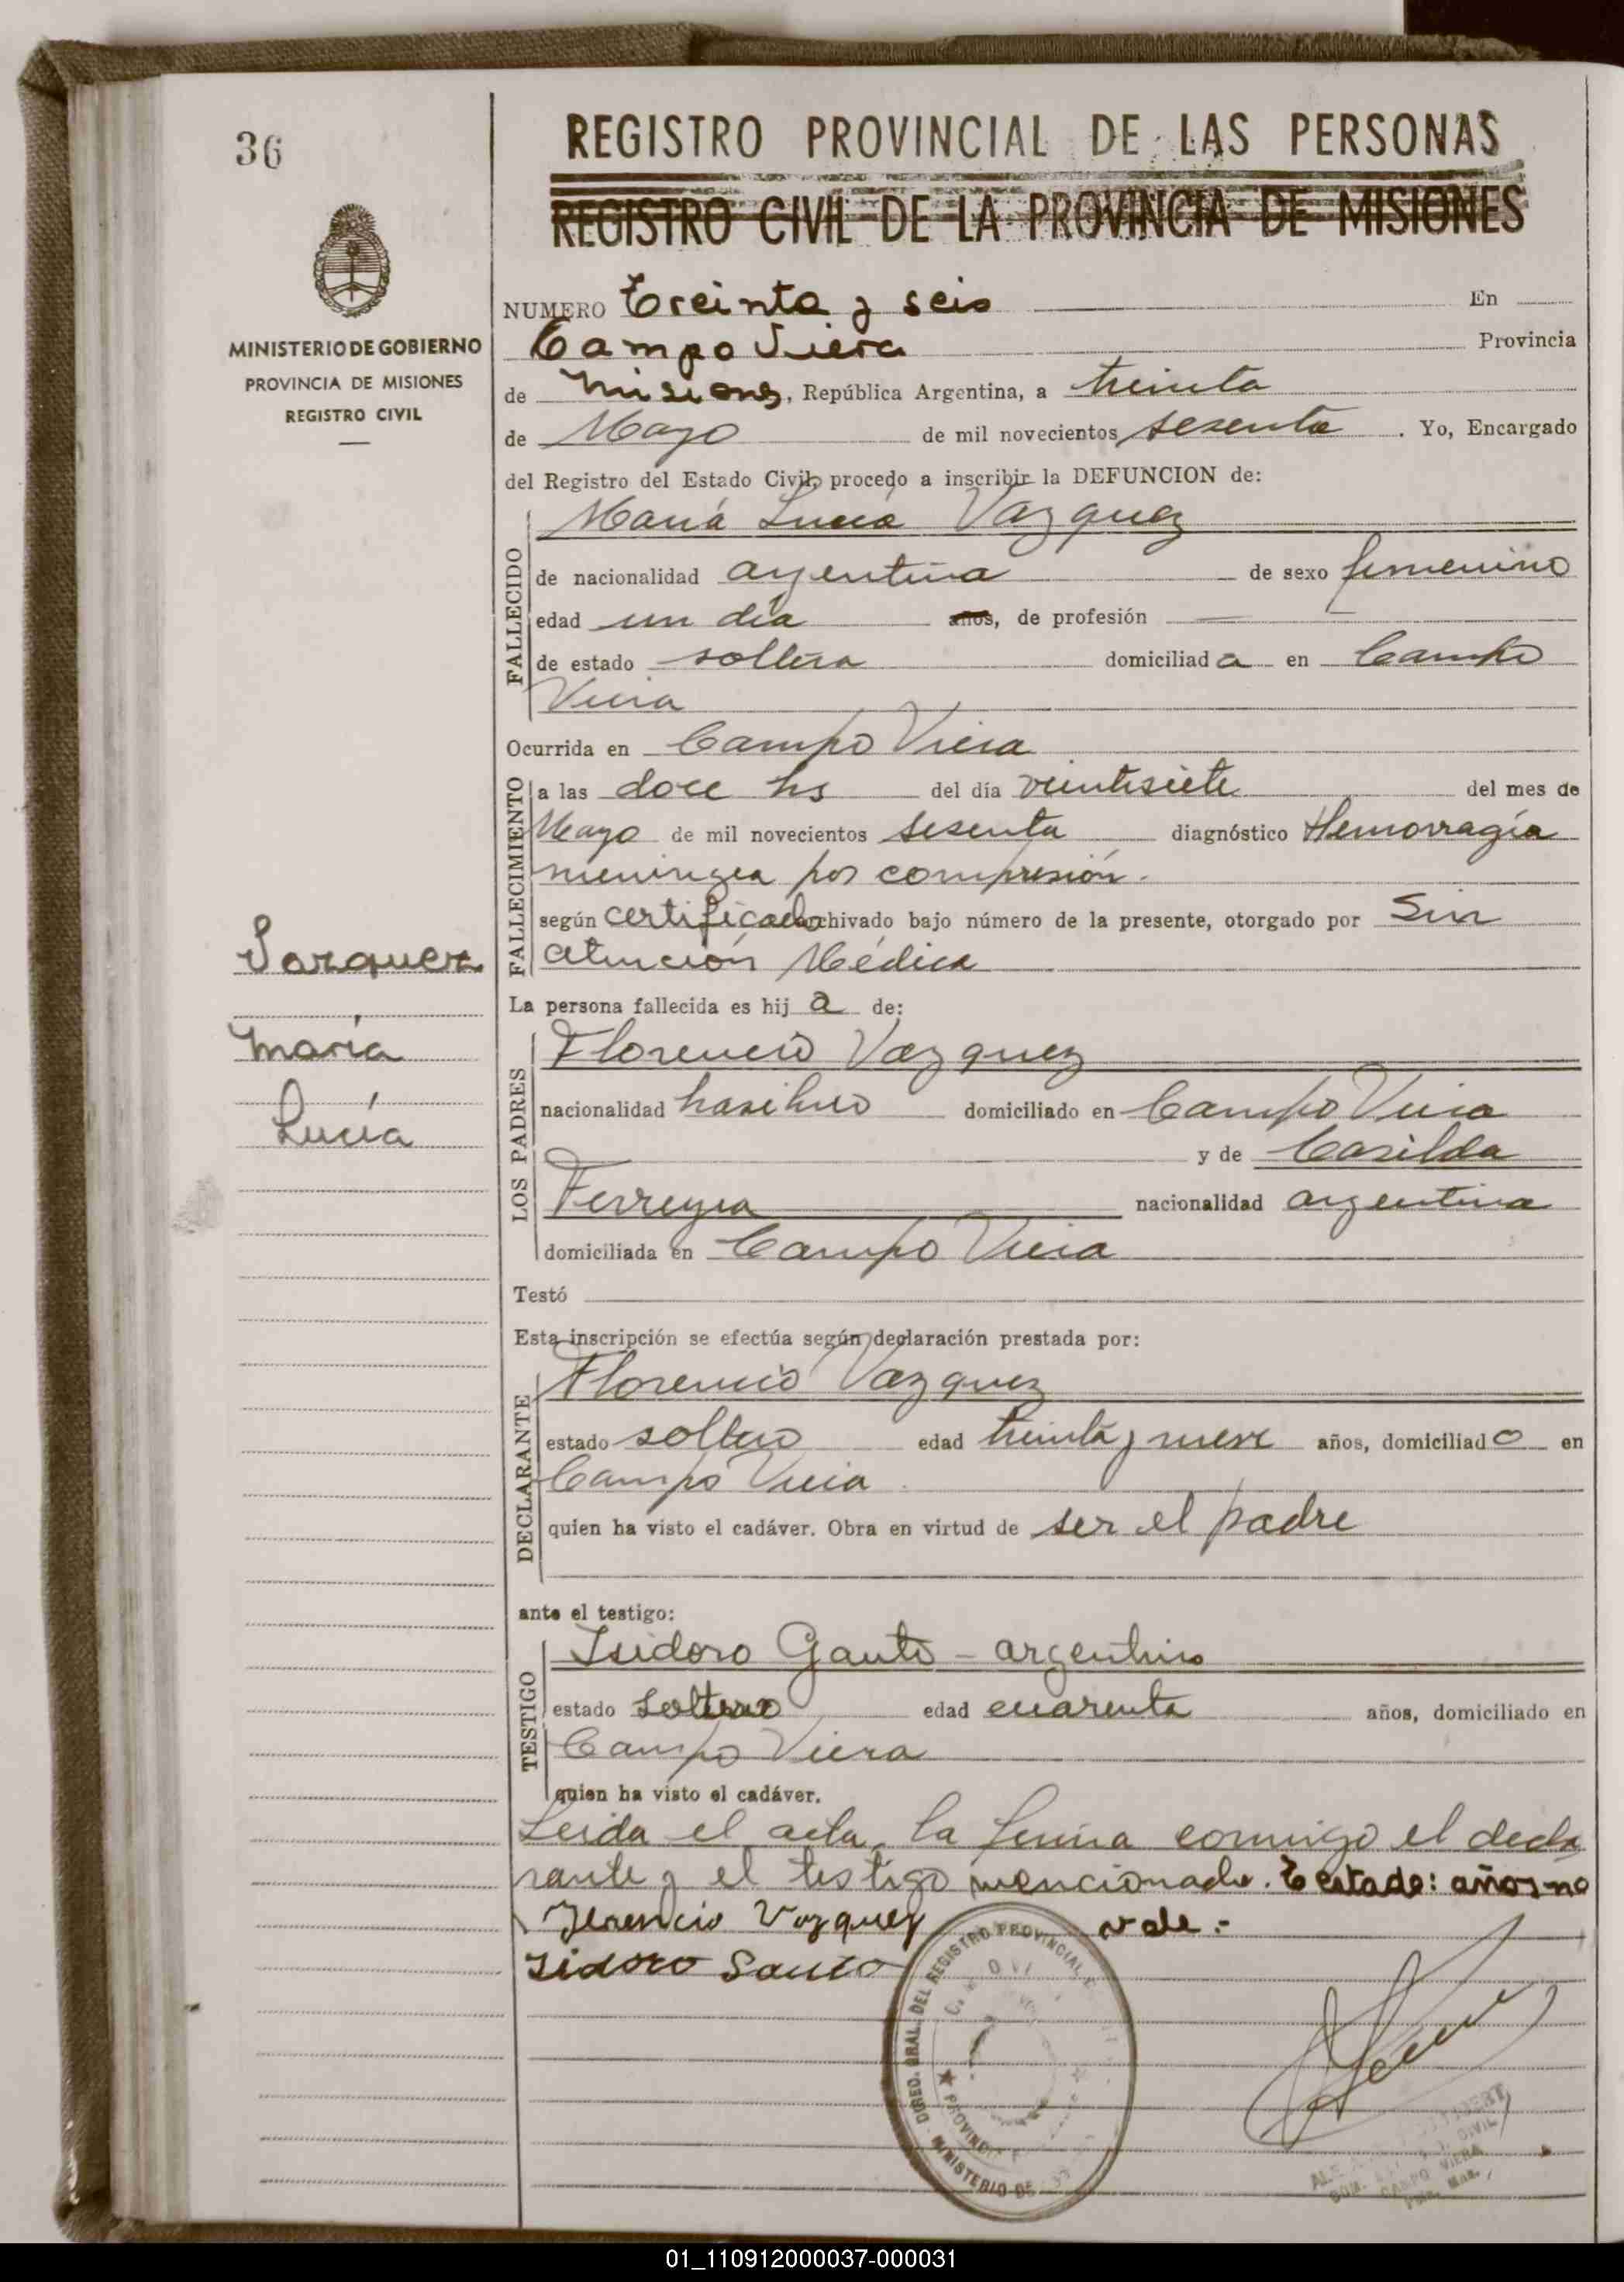 36
REGISTRO PROVINCIAL DE LAS PERSONAS
REGISTRO CIVIL DE LA PROVINCIA DE MISIONES
MINISTERIO DE GOBIERNO
PROVINCIA DE MISIONES
REGISTRO CIVIL
NUMERO Treinta y seis En
Campo Viera Provincia
de Misiones, República Argentina, a treinta
de Mayo de mil novecientos sesenta. Yo, Encargado
del Registro del Estado Civil, procedo a inscribir la DEFUNCION de:
FALLECIDO
María Lucía Vazquez
de nacionalidad argentina de sexo femenino
edad un día años, de profesión
de estado soltera domiciliada en Campo
Viera
Ocurrida en Campo Viera
FALLECIMIENTO
a las doce hs del día veintisiete del mes de
Mayo de mil novecientos sesenta diagnóstico Hemorragía
meningea por compresión.
según certificado archivado bajo número de la presente, otorgado por Sin
atención Médica
Vazquez
María
Lucía
La persona fallecida es hija de:
LOS PADRES
Florencio Vazquez
nacionalidad brasilero domiciliado en Campo Viera
y de Casilda
Ferreyra nacionalidad argentina
domiciliada en Campo Viera
Testó
Esta inscripción se efectúa según declaración prestada por:
DECLARANTE
Florencio Vazquez
estado soltero edad treinta y nueve años, domiciliado en
Campo Viera.
quien ha visto el cadáver. Obra en virtud de ser el padre
ante el testigo:
TESTIGO
Isidoro Gauto - argentino
estado soltero edad cuarenta años, domiciliado en
Campo Viera
quien ha visto el cadáver.
Leida el acta, la firma conmigo el decla
rante y el testigo mencionado. Testado: años no
vale.-
Florencio Vazquez
Isidoro Gauto
DIREC. GRAL. DEL REGISTRO PROVINCIAL
MINISTERIO DE
CAMPO VIERA
01_110912000037-000031